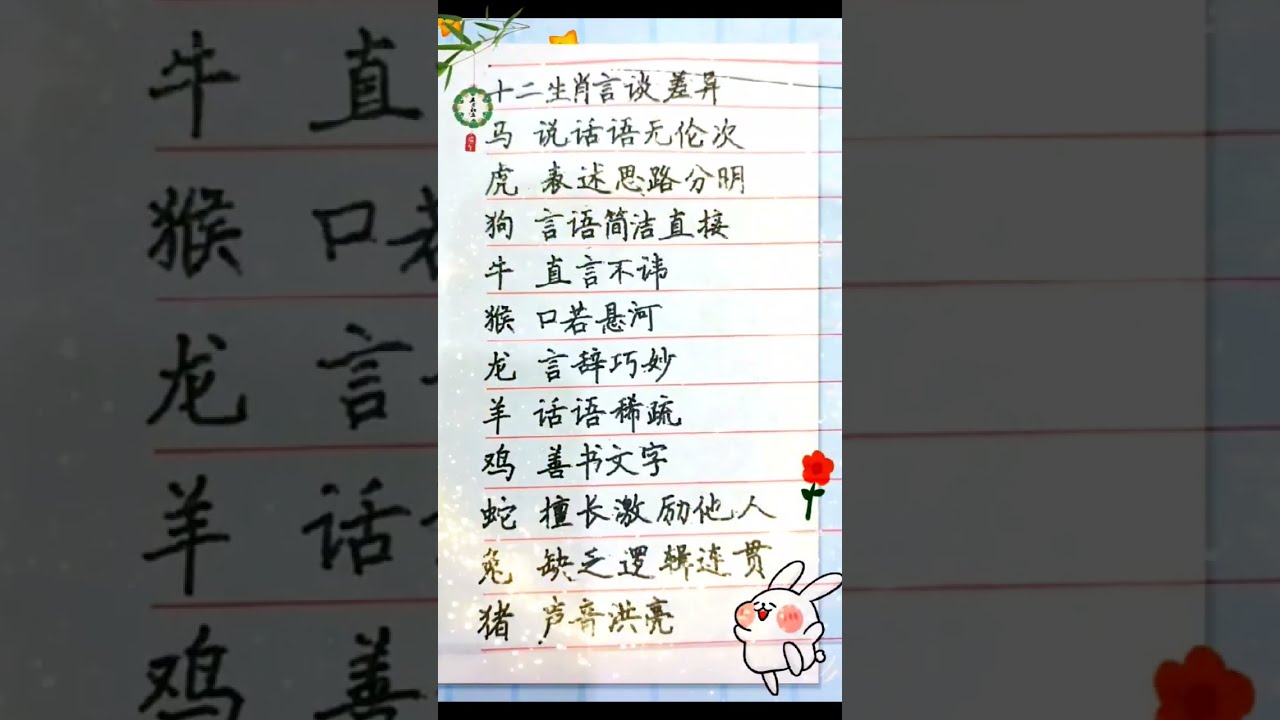 十二生肖言谈差异
马 说话语无伦次
虎 表述思路分明
狗 言语简洁直接
牛 直言不讳
猴 口若悬河
龙 言辞巧妙
羊 话语稀疏
鸡 善书文字
蛇 擅长激励他人
兔 缺乏逻辑连贯
猪 声音洪亮
牛 直
猴 口若
龙 言
羊 话
鸡 善